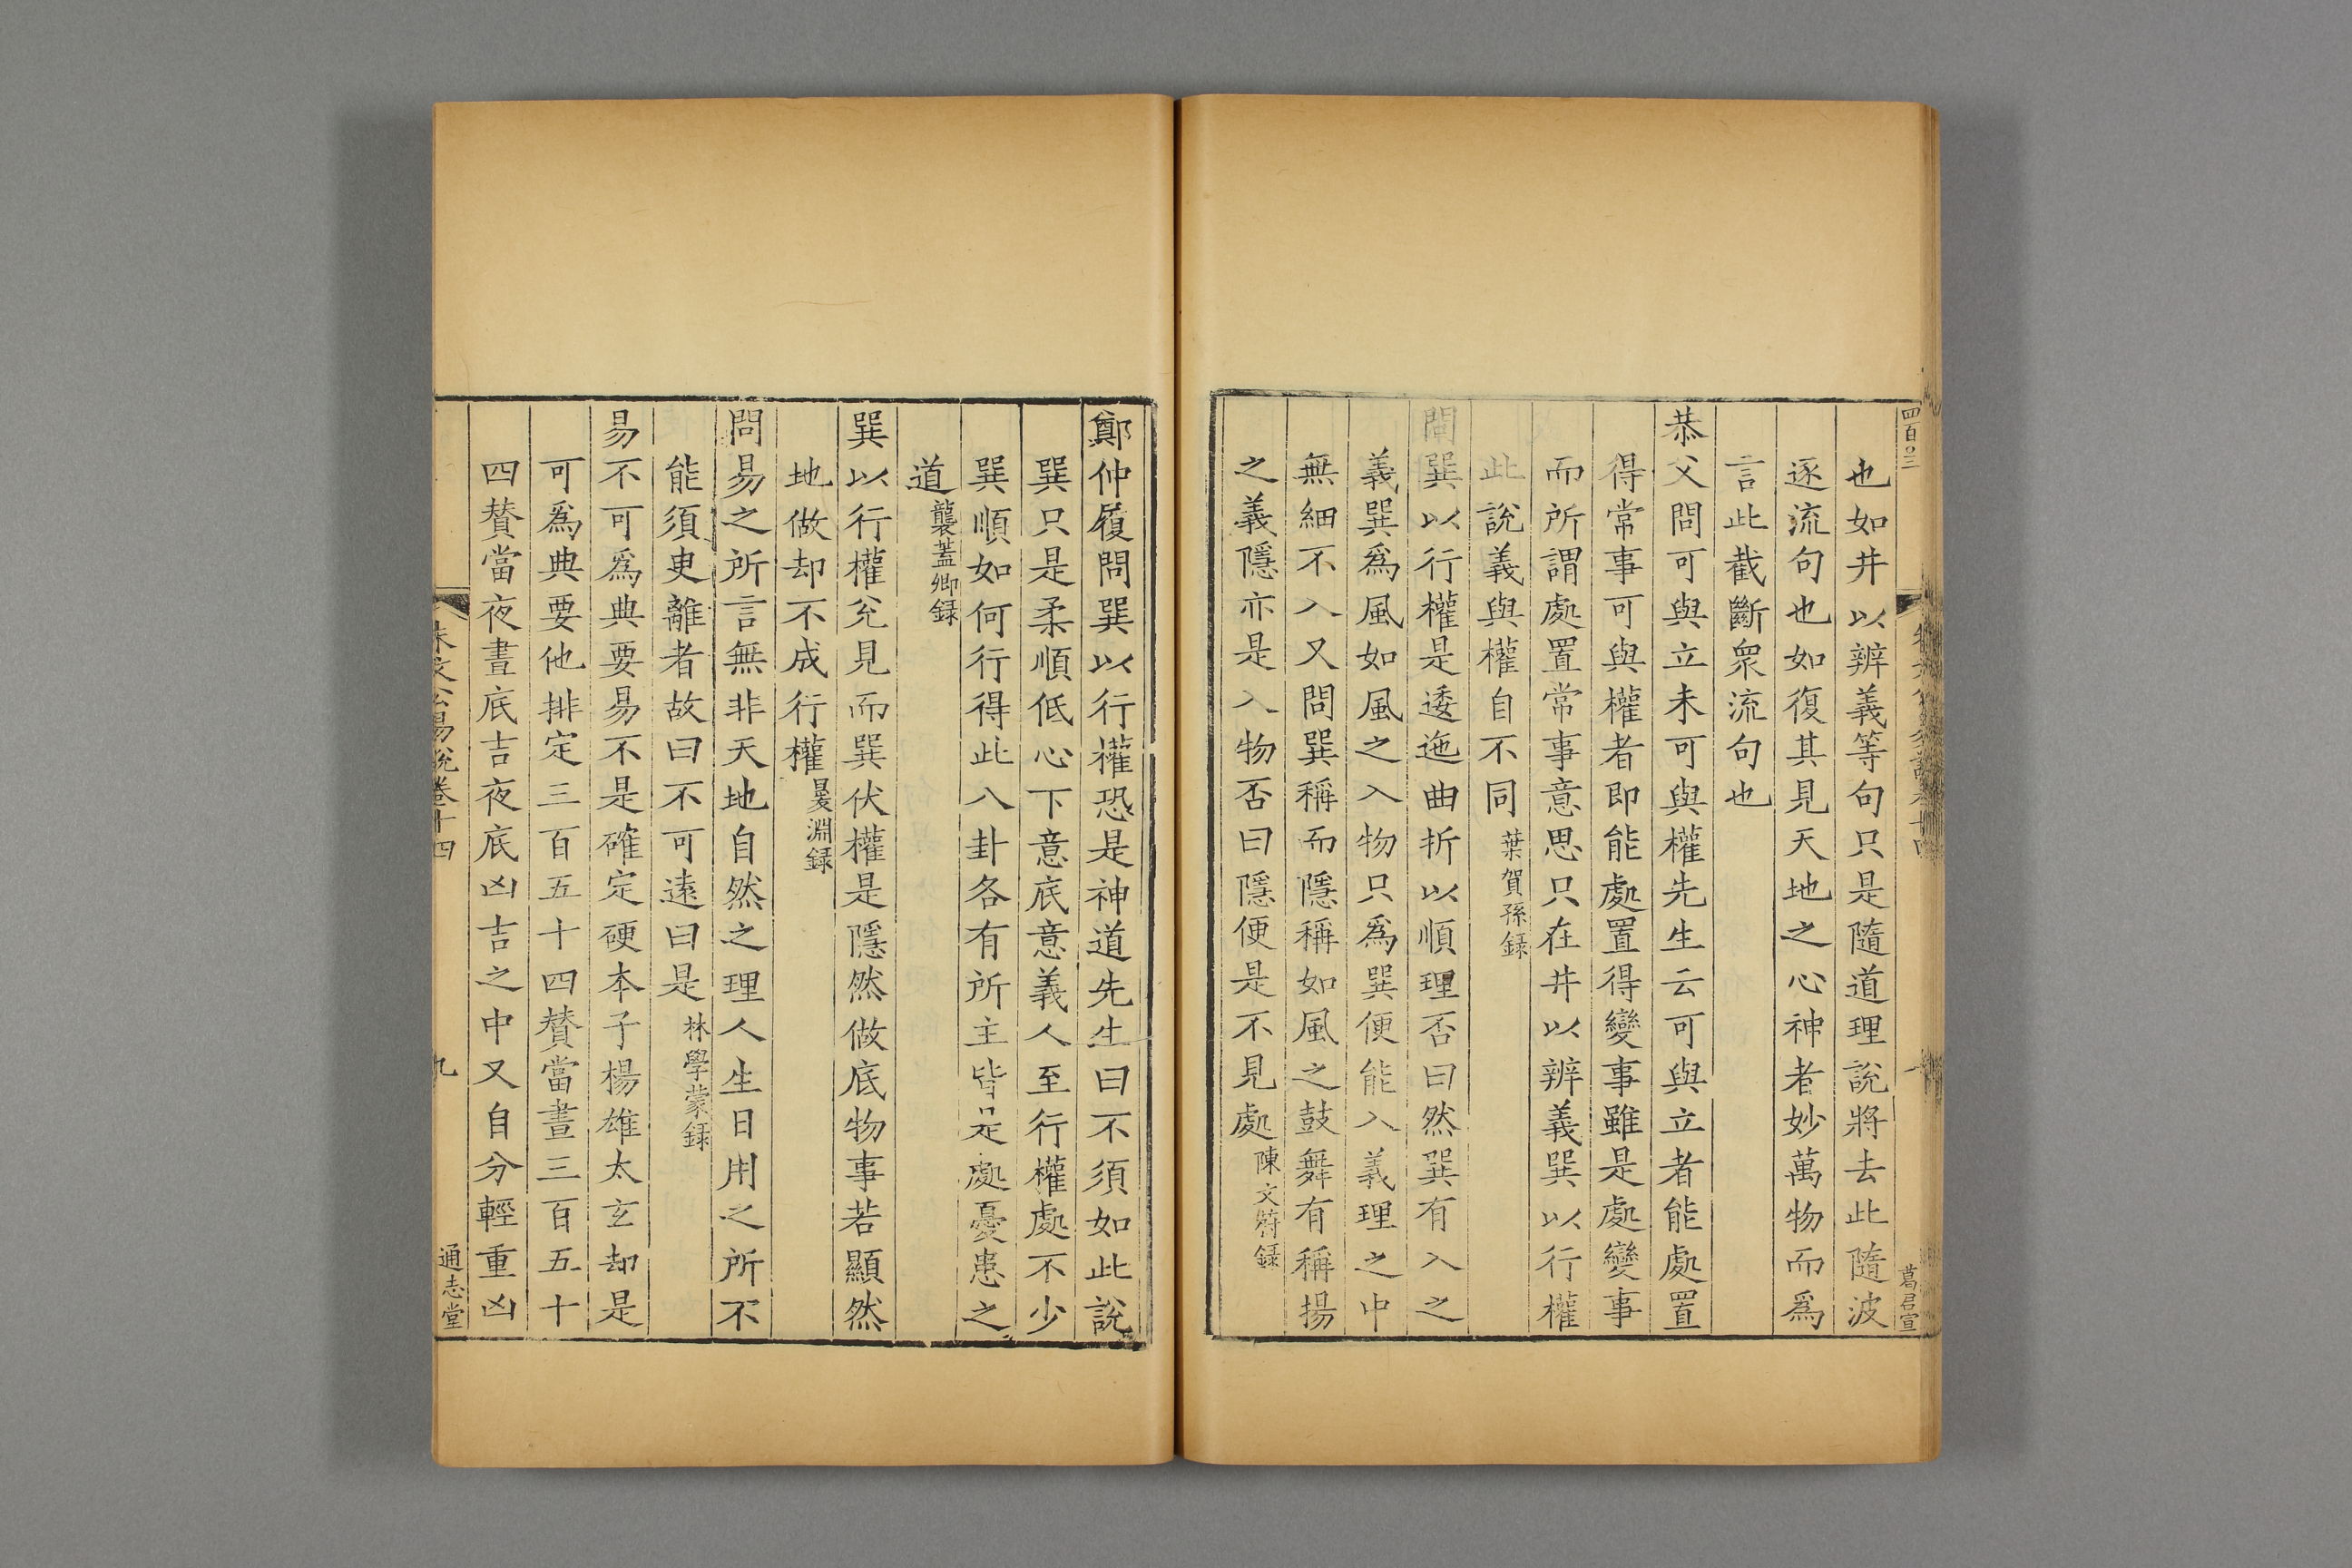 四百三
葛君宣
也如井以辨義等句只是隨道理說將去此隨波
逐流句也如復其見天地之心神者妙萬物而爲
言此截斷衆流句也
恭父問可與立未可與權先生云可與立者能處置
得常事可與權者即能處置得變事雖是處變事
而所謂處置常事意思只在井以辨義巽以行權
此說義與權自不同葉賀孫録
問巽以行權權是逶迤曲折以順理否曰然巽有入之
義巽爲風如風之入物只爲巽便能入義理之中
無細不入又問巽稱而隱稱如風之鼓舞有稱揚
之義隱亦是入物否曰隱便是不見處陳文蔚録
鄭仲履問巽以行權恐是神道先生曰不須如此說
巽只是柔順低心下意底意義人至行權處不少
巽順如何行得此八卦各有所主皆是處憂患之
道襲蓋卿録
巽以行權兊見而巽伏權是隱然做底物事若顯然
地做却不成行權㬊淵録
問易之所言無非天地自然之理人生日用之所不
能須臾離者故曰不可遠曰是林學蒙録
易不可爲典要易不是確定硬本子楊雄太玄却是
可爲典要他排定三百五十四贊當晝三百五十
四贊當夜晝底吉夜底凶吉之中又自分輕重凶
朱文公易說卷十四
九
通志堂